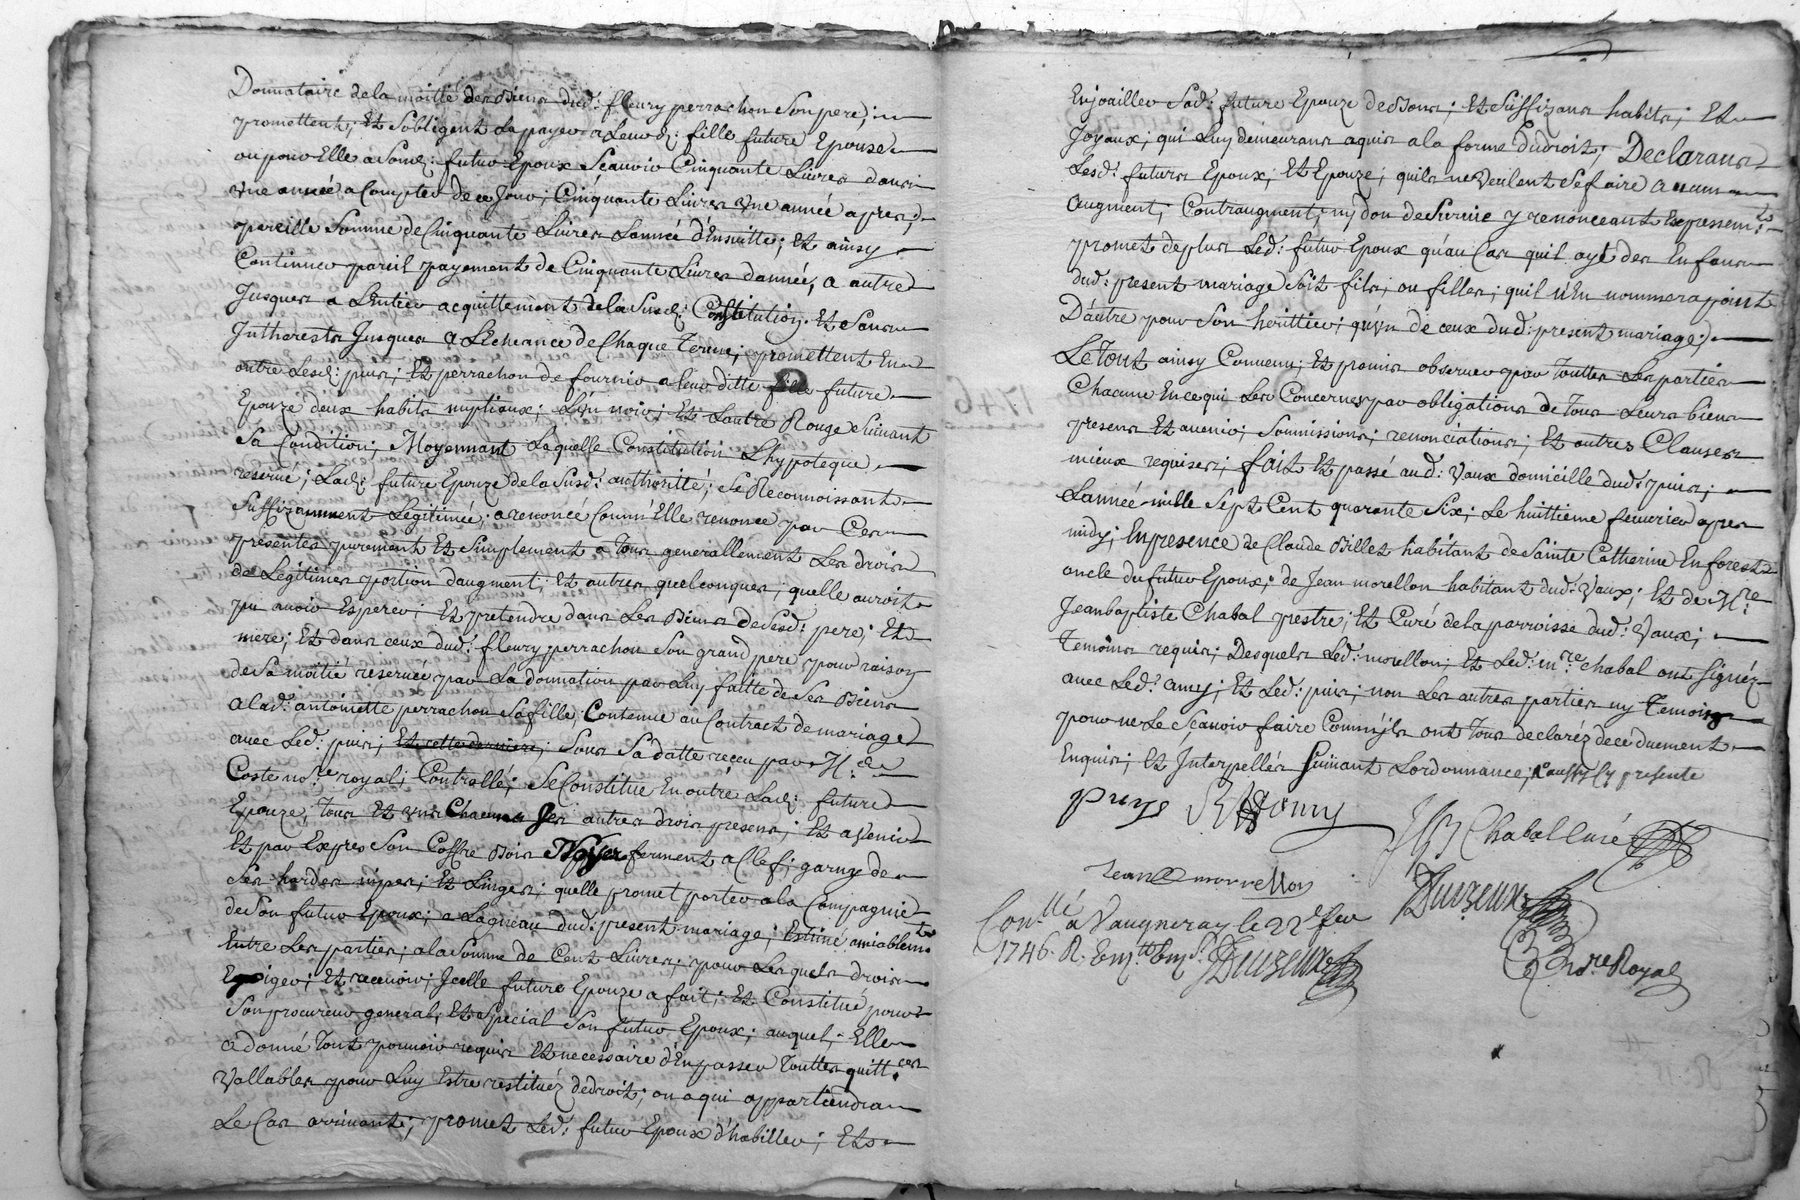 Donnataire de la moitié des Biens dud: fleury perrachon son pere;
promettent; Et s'obligent la payer a Leurd: fille future Epouse
ou pour Elle a Sond: futur Epoux Scauoir Cinquante Liures dans
vne année a Compter de ce Jour; Cinquante Liures vne année apres;
pareille Somme de Cinquante Liures Lannée d'Ensuitte; Et ainsy
Continuer pareil payement de Cinquante Liures d'année, a autre
Jusques a L'Entier acquittement de la Susd: Constitution. Et Sans
Jntherests Jusques a L'Echeance de Chaque Terme; promettent En
outre Lesd: puis; Et perrachon de fournir a leur ditte fille future
Epouze deux habits nuptiaux; L'un noir; Et Lautre Rouge Suiuant
Sa Condition; Moyennant Laquelle Constitution Lhypoteque
reserué; Lad: future Epouze de la Susd: authorité; Se Reconnoissant
Suffizamment Legitimée; a renoncé Comm'Elle renonce par Ces
presentes purement Et Simplement a Tous generallement Les droits
de Legitimes portion d'augment; Et autres quelconques; quelle auroit
pu auoir Esperer; Et pretendre dans Les Biens de Sesd: pere; Et
mere; Et dans ceux dud: fleury perrachon Son grand pere pour raison
de Sa moitié reseruée par La donnation par Luy faitte de Ses Biens
a lad: antoinette perrachon Sa fille; Contenue au Contract de mariage
auec Led: puis; Et cette derniere; Sous Sa datte receu par Me de
Coste nore royal; Controllé; Se Constitue En outre Lad: future
Epouze; Tous Et vns Chacuns Ses autres droits presens; Et a Venir
Et par Expres Son Coffre Bois Noyer ferment a Clef; garny de
Ses hardes nipes; Et Linges; quelle promet porter a la Compagnie
de Son futur Epoux; a Lagneau dud: present mariage; Estimé amiablemt
Entre Les parties; a la Somme de Cent Liures; pour Lesquels droits
Exiger; Et receuoir; Jcelle future Epouze a fait; Et Constitué pour
Son procureur general; Et Special Son futur Epoux; auquel; Elle
a donné Tout pouuoir requis Et necessaire d'En passer Touttes quittces
Vallables pour Luy Estre restituéz de droit; ou a qui appartiendra
Le Cas arriuant; promet Led: futur Epoux d'habiller; Et
Enjoailler Sad: future Epouze de Bons; Et Suffizans habits; Et
Joyaux; qui Luy demeurans aquis a la forme du droit; Declarans
Lesd: futurs Epoux; Et Epouze; quils ne Veulent Se faire aucun
augment; Contraugment; ny don de Suruie y renonceant Expressemt:
promet de plus Led: futur Epoux qu'au Cas quil aye des Enfans
dud: present mariage Soit fils; ou filles; quil n'En nommera point
D'autre pour Son herittier; qu'un de ceux dud: present mariage;
Le Tout ainsy Conuenu; Et promis obseruer par Touttes Les parties
Chacune En ce qui Les Concernes par obligations de Tous Leurs biens
presens Et auenir; Soumissions; renonciations; Et autres Clauses
mieux requises; fait Et passé aud: Vaux domicille dud: puis;
Lannée mille Sept Cent quarante Six; Le huittieme feurier apres
midy; En presence de Claude Billet habitant de Sainte Catherine En forest
oncle du futur Epoux; de Jean morellon habitant dud: Vaux; Et de Mre:
Jean baptiste Chabal prestre; Et Curé de la parroisse dud: Vaux;
Temoins requis; Desquels Led: morellon; Et Led: mre chabal ont Signéz
auec Led: amy; Et Led: puis; non Les autres parties ny Temoins
pour ne Le Scauoir faire Comm'ils ont Tous declaréz de ce duement
Enquis; Et Jnterpellés Suiuant Lordonnance;
puys
JB Chabal Curé
Jean morrellon
Duizeux
nore Royal
Conllé à Vaugneray le 22e feu
1746. R.
Duizeux